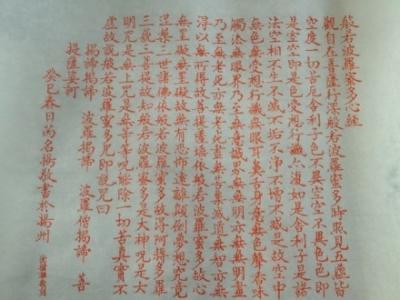 般若波羅蜜多心經
觀自在菩薩行深般若波羅蜜多時照見五蘊皆
空度一切苦厄舍利子色不異空空不異色色即
是空空即是色受想行識亦復如是舍利子是諸
法空相不生不滅不垢不淨不增不減是故空中
無色無受想行識無眼耳鼻舌身意無色聲香味
觸法無眼界乃至無意識界無無明亦無無明盡
乃至無老死亦無老死盡無苦集滅道無智亦無
得以無所得故菩提薩埵依般若波羅蜜多故心
無罣礙無罣礙故無有恐怖遠離顛倒夢想究竟
涅槃三世諸佛依般若波羅蜜多故得阿耨多羅
三藐三菩提故知般若波羅蜜多是大神咒是大
明咒是無上咒是無等等咒能除一切苦真實不
虛故說般若波羅蜜多咒即說咒曰
揭諦揭諦 波羅揭諦 波羅僧揭諦 菩
提薩婆訶
癸巳春日芮名揚敬書於揚州